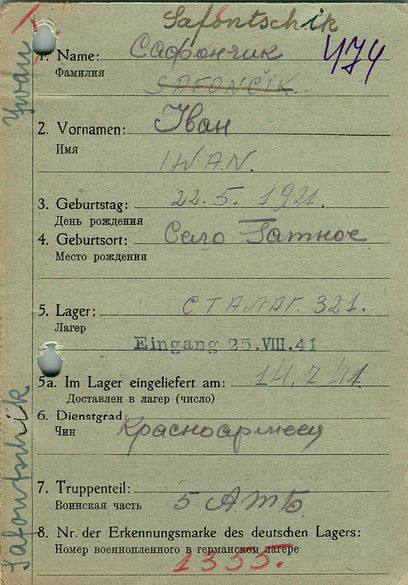 Safontschik
474
1. Name: Сафончик
Фамилия
SAFONČIK.
2. Vornamen: Іван
Имя
IWAN.
3. Geburtstag: 22. 5. 1921.
День рождения
4. Geburtsort: Село Гатное
Место рождения
5. Lager: СТАЛАГ. 321.
Лагер
Eingang 25. VIII. 41
5a. Im Lager eingeliefert am: 14. 7 41
Доставлен в лагер (число)
6. Dienstgrad: Красноармеец
Чин
7. Truppenteil: 5 АТБ
Воинская часть
8. Nr. der Erkennungsmarke des deutschen Lagers:
Номер военнопленного в германском лагере
1355.
Safontschik
Ywan